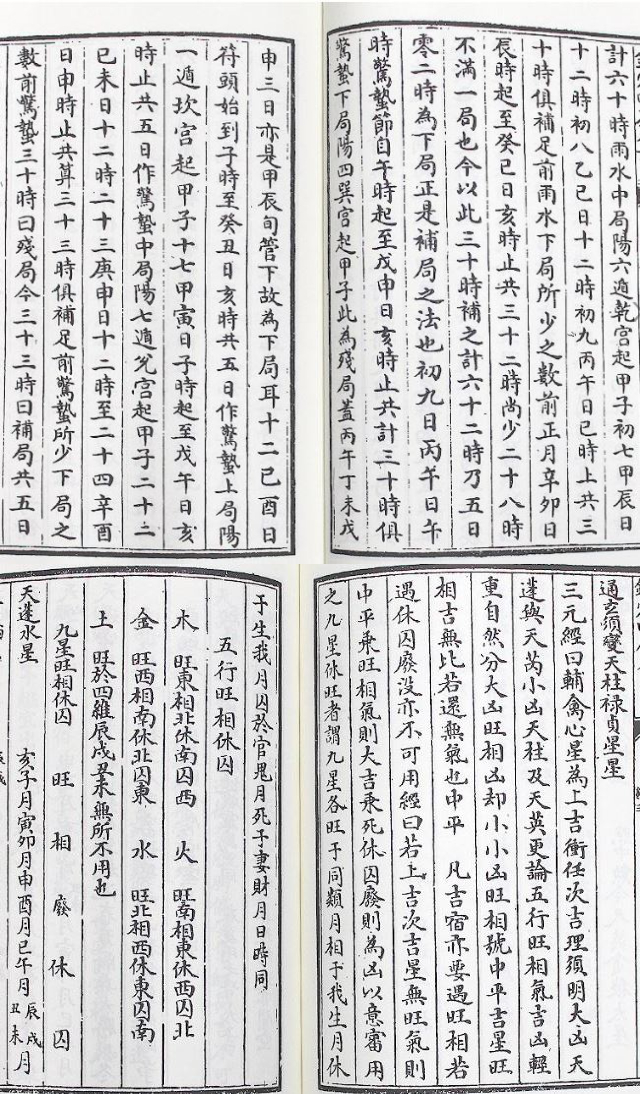 計六十時雨水中局陽六遁乾宮起甲子初七甲辰日
十二時初八乙巳日十二時初九丙午日巳時上共三
十時俱補足前雨水下局所少之數前正月辛卯日
辰時起至癸巳日亥時止共三十二時尚少二十八時
不滿一局也今以此三十時補之計六十二時乃五日
零二時為下局正是補局之法也初九日丙午日午
時驚蟄節自午時起至戊申日亥時止共計三十時俱
驚蟄下局陽四巽宮起甲子此為殘局蓋丙午丁未戊
申三日亦是甲辰旬管下故為下局耳十二己酉日
符頭始到子時至癸丑日亥時共五日作驚蟄上局陽
一遁坎宮起甲子十七甲寅日子時起至戊午日亥
時止共五日作驚蟄中局陽七遁兌宮起甲子二十二
己未日十二時二十三庚申日十二時至二十四辛酉
日申時止共算三十三時俱補足前驚蟄所少下局之
數前驚蟄三十時曰殘局今三十三時曰補局共五日
通玄須變天柱祿貞星星
三元經曰輔禽心星為上吉衝任次吉理須明大凶天
蓬與天芮小凶天柱及天英更論五行旺相氣吉凶輕
重自然分大凶旺相凶却小小凶旺相號中平吉星旺
相吉無比若還無氣也中平 凡吉宿亦要遇旺相若
遇休囚廢没亦不可用經曰若上吉次吉星無旺氣則
中平乘旺相氣則大吉乘死休囚廢則為凶以意審用
之九星休旺者謂九星各旺于同類月相于我生月休
于生我月囚於官鬼月死于妻財月日時同
五行旺相休囚
木 旺東相北休南囚西 火 旺南相東休西囚北
金 旺西相南休北囚東 水 旺北相西休東囚南
土 旺於四維辰戌丑未無所不用也
九星旺相休囚 旺 相 廢 休 囚
天蓬水星 亥子月寅卯月申酉月巳午月辰戌丑未月